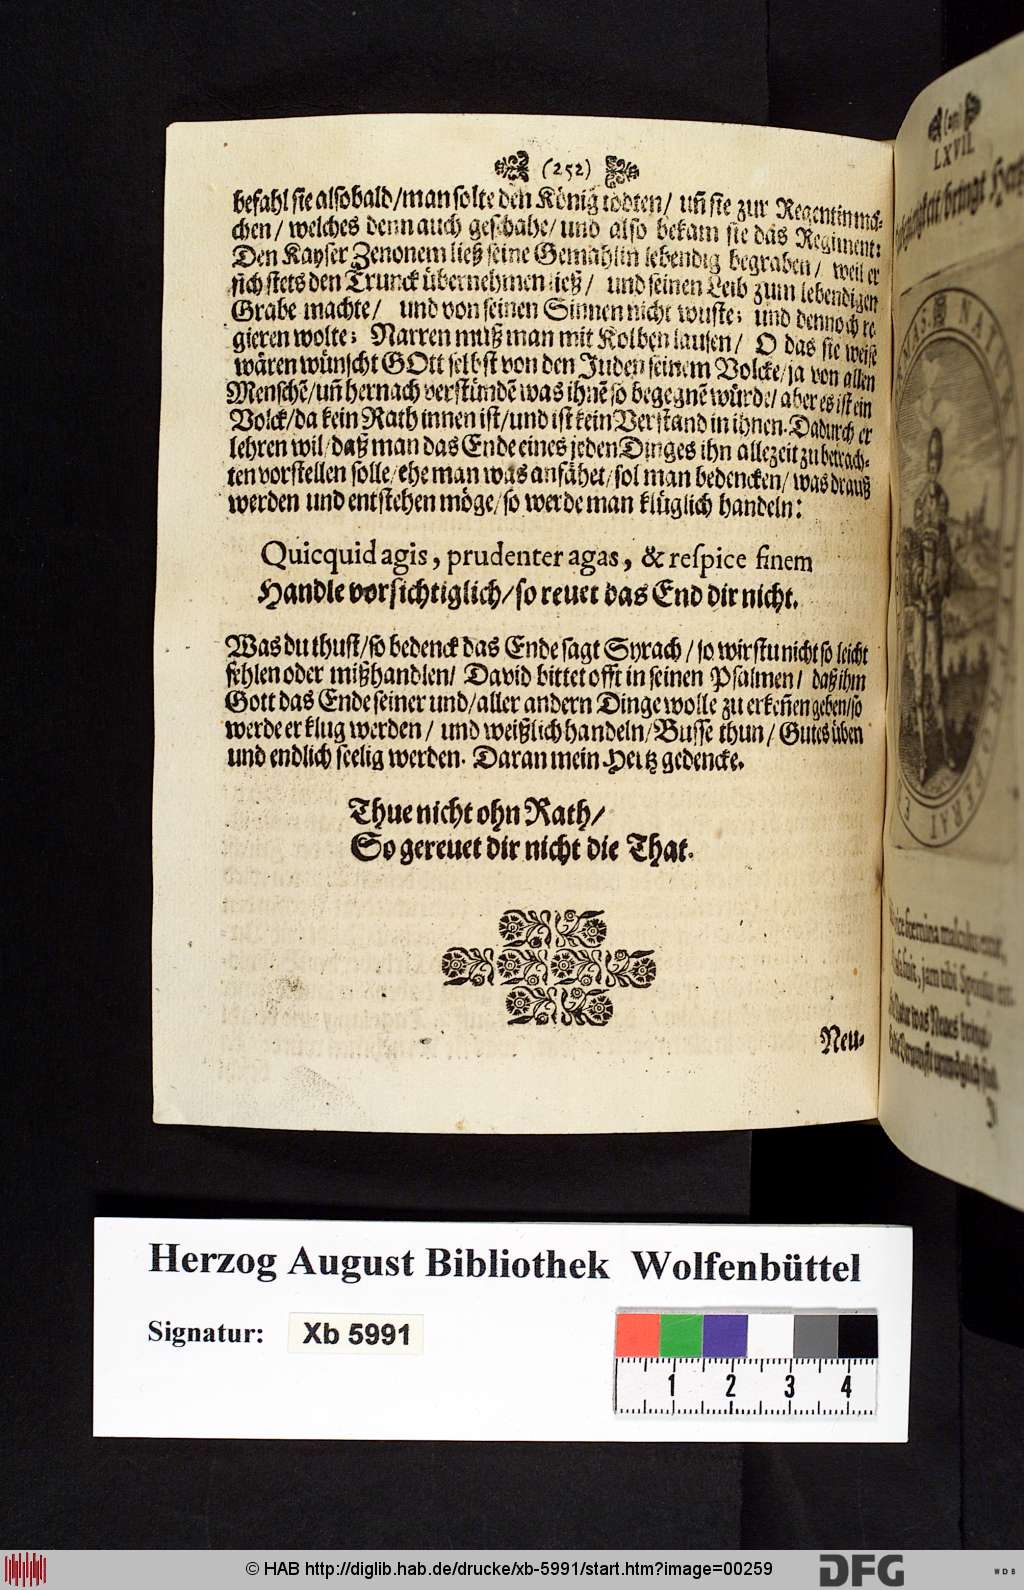 (252)
befahl sie alsobald/man solte den König tödten/ uñ sie zur Regentin mä-
chen/ welches denn auch geschahe/ und also bekam sie das Regiment:
Den Kayser Zenonem ließ seine Gemahlin lebendig begraben/ weil er
sich stets den Trunck übernehmen ließ/ und seinen Leib zum lebendigen
Grabe machte/ und von seinen Sinnen nicht wuste; und dennoch re-
gieren wolte; Narren muß man mit Kolben lausen/ O das sie weise
wären wünscht GOtt selbst von den Juden seinem Volcke/ja von allen
Menschẽ/uñ hernach verstündẽ was ihnẽ so begegnẽ würde/ aber es ist ein
Volck/da kein Rath innen ist/und ist kein Verstand in ihnen. Dadurch er
lehren wil/daß man das Ende eines jeden Dinges ihn allezeit zu betrach-
ten vorstellen solle/ehe man was anfähet/sol man bedencken/ was drauß
werden und entstehen möge/so werde man klüglich handeln:
Quicquid agis, prudenter agas, & reſpice finem
Handle vorsichtiglich/so reuet das End dir nicht.
Was du thust/so bedenck das Ende sagt Syrach/ so wirstu nicht so leicht
fehlen oder mißhandlen/ David bittet offt in seinen Psalmen/ daß ihm
Gott das Ende seiner und/aller andern Dinge wolle zu erkeñen geben/so
werde er klug werden/ und weißlich handeln/Busse thun/ Gutes üben
und endlich seelig werden. Daran mein Hertz gedencke.
Thue nicht ohn Rath/
So gereuet dir nicht die That.
Neu-
LXVII.
bringt
foemina
, jam tibi
was Neues bringt/
Herzog August Bibliothek Wolfenbüttel
Signatur: Xb 5991
1 2 3 4
© HAB http://diglib.hab.de/drucke/xb-5991/start.htm?image=00259
DFG
WDB